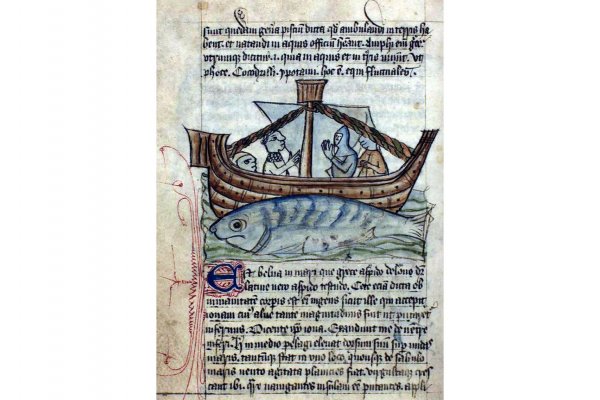 sunt quedam gen̄a pisciū dicta qđ ambulandi in terris ha
bent. et natandi in aquis officiū hēant. Amphi em̄ gre
utrumque dicit᷑ .i. quia in aquis et in t̓ris uiuūt. Vt
phoce. Cocodrilli. ypotami. hoc ē. equi fluctuales.
Est belua in mari que grece aspido delone dr̄
latine uero aspido testudo. Cete eciā dicta ob
inmanitatē corꝑis est eī ingens sicut ille qui excepit
ionam cui᷒ alu᷒ tante magnitudinis fuit ut putaret᷑
infernus. Dicente ip̄o iona. Exaudiuit me de uentre
inferi. in medio pelagi eleuat dorsum suū sup̄ undas
maris. tantūque stat in uno loco. quousque de sabulo
maris uento agitata planicies fiat. virgultaque cres
cant ibi. nauigantes insulam eē putantes. appli